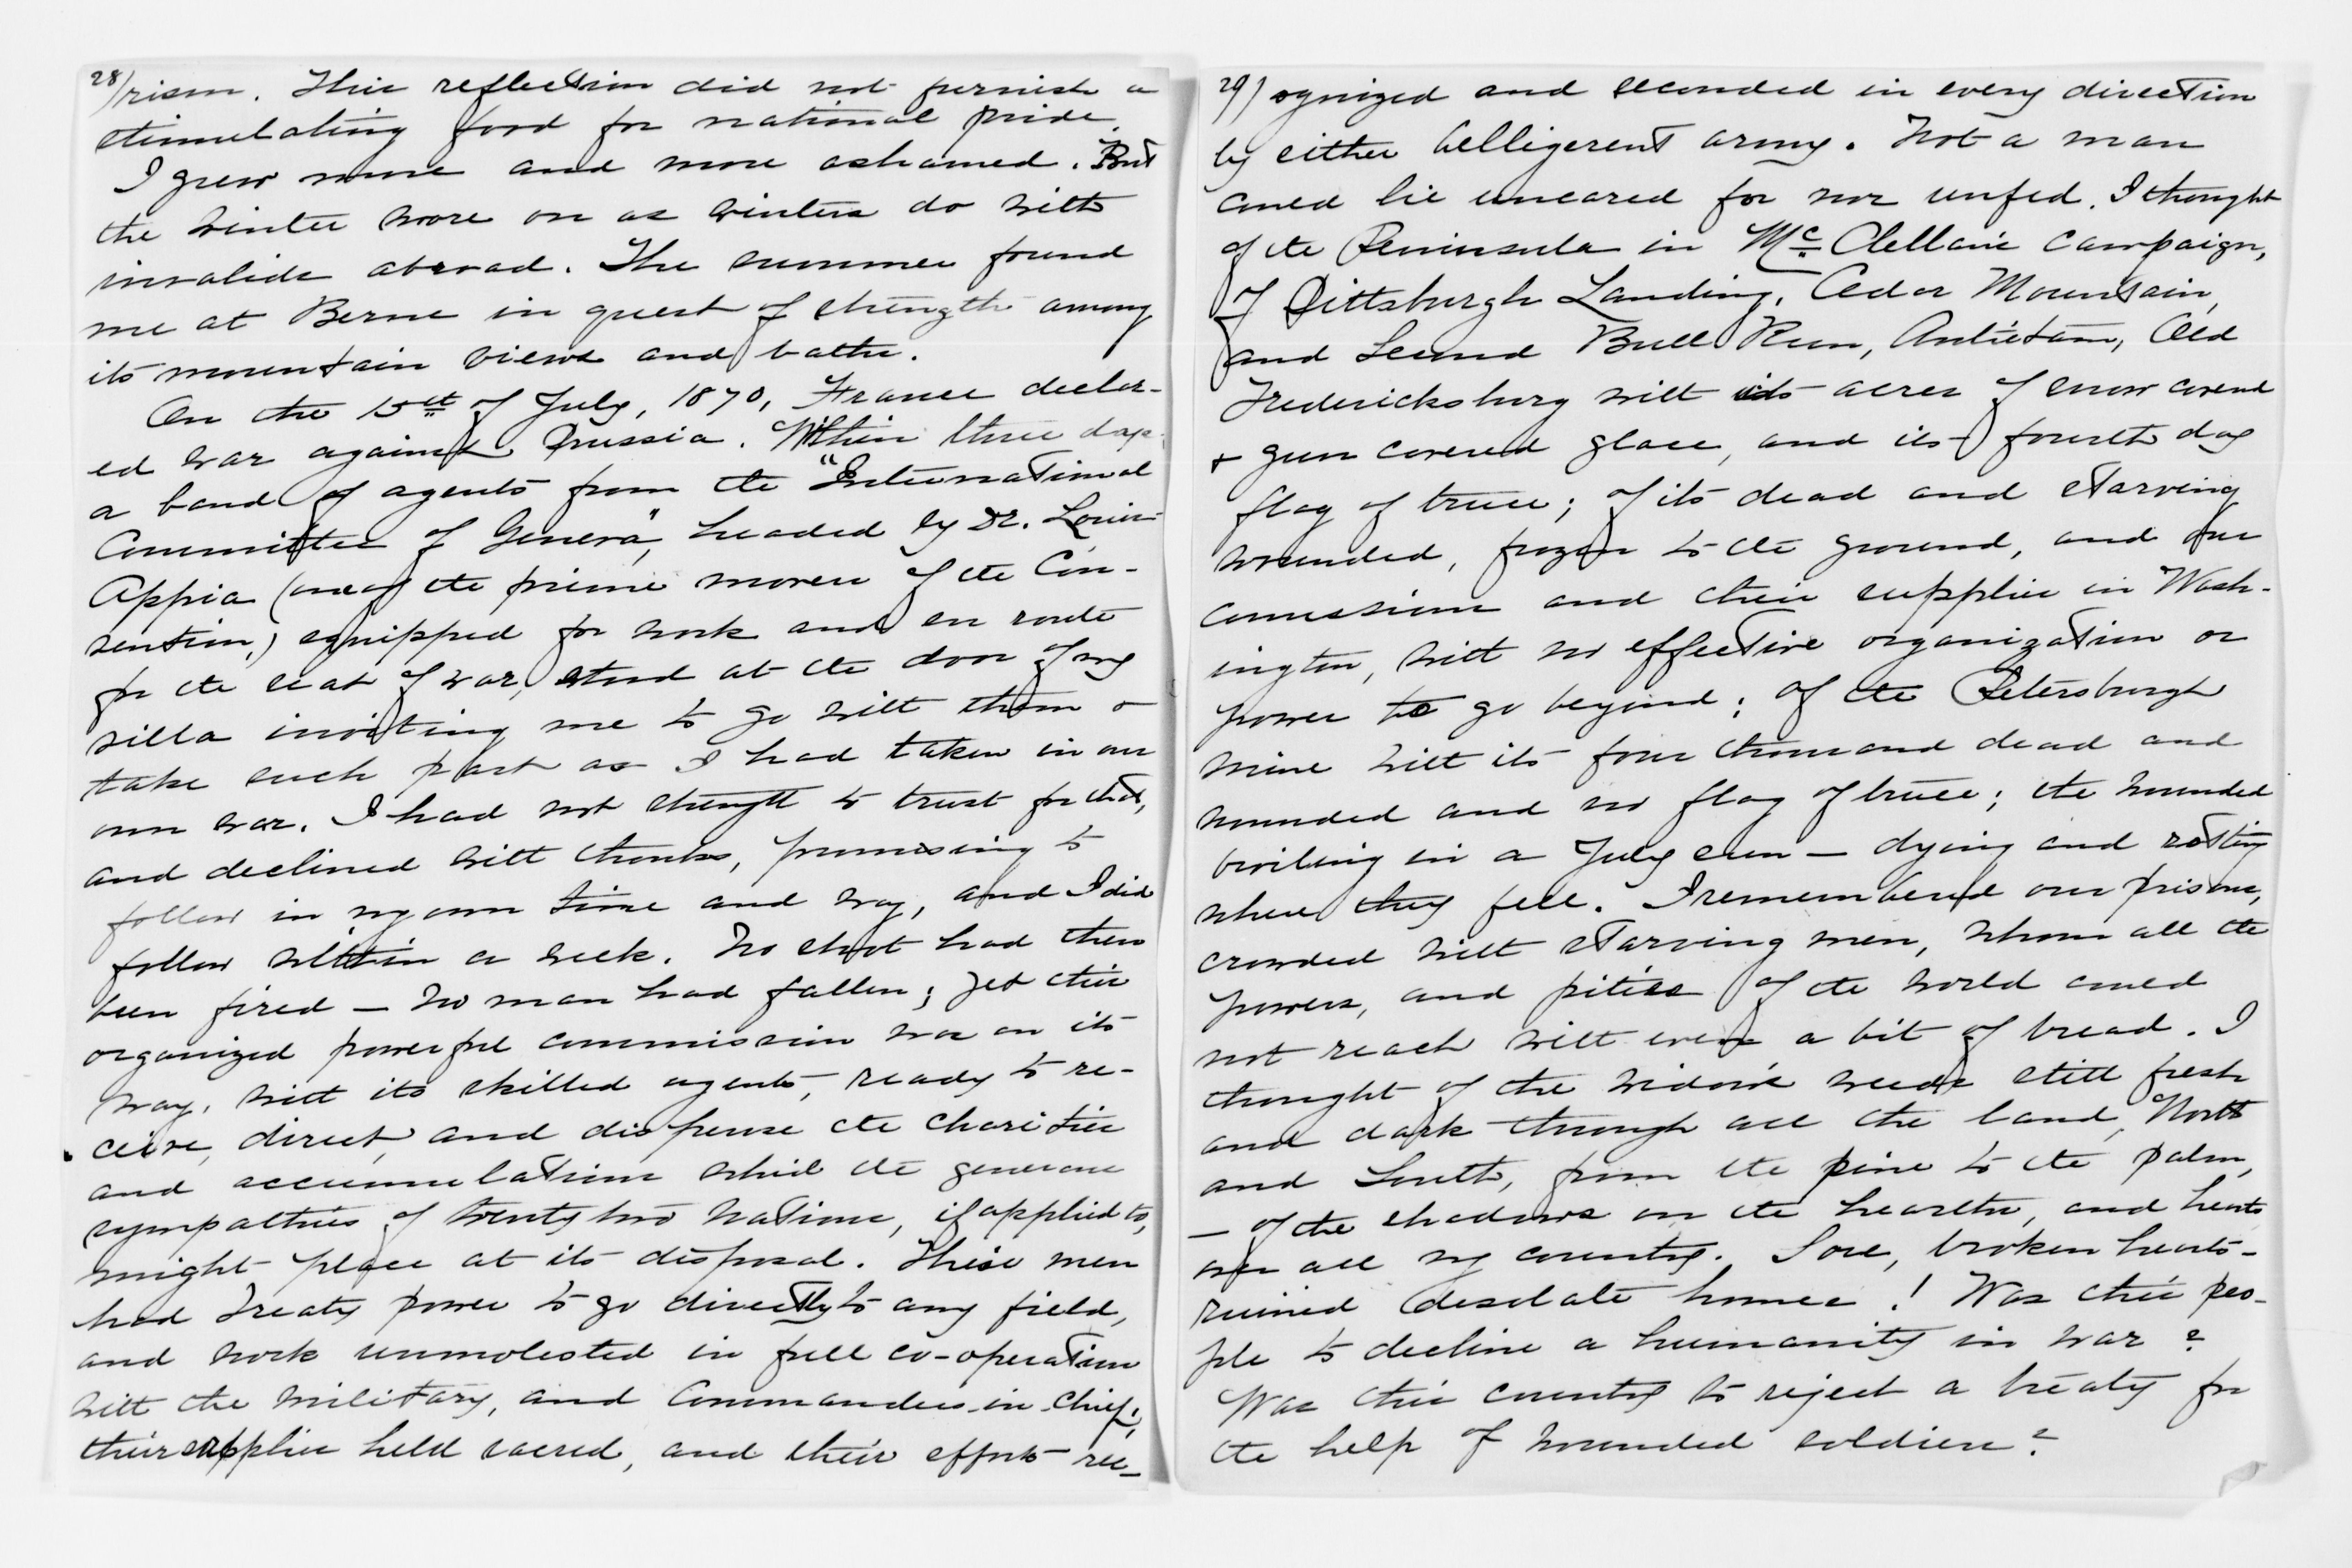 28/ rism. This reflection did not furnish a
stimulating food for national pride.
I grew more and more ashamed. But
the winter wore on as winters do with
invalids abroad. The summer found
me at Berne in quest of strength among
its mountain views and baths.
On the 15th of July, 1870, France declar-
ed war against Prussia. Within three days
a band of agents from the "International
Committee of Geneva", headed by Dr. Louis
Appia (one of the prime movers of the Con-
vention,) equipped for work and en route
for the seat of war, stood at the door of my
villa inviting me to go with them &
take such part as I had taken in our
own war. I had not strength to trust for that,
and declined with thanks, promising to
follow in my own time and way, and I did
follow within a week. No shot had then
been fired — no man had fallen; yet this
organized powerful commission was on its
way, with its skilled agents, ready to re-
ceive, direct, and dispense the charities
and accumulations which the generous
sympathies of twenty two nations, if applied to,
might place at its disposal. These men
had treaty power to go directly to any field,
and work unmolested in full co-operation
with the military, and Commanders-in-chief;
their supplies held sacred, and their efforts rec-
29/ ognized and seconded in every direction
by either belligerent army. Not a man
could lie uncared for nor unfed. I thought
of the Peninsula in McClellan's campaign,
of Pittsburgh Landing, Cedar Mountain,
and Second Bull Run, Antietam, Old
Fredericksburg with its acres of snow covered
& gun covered glacé, and its fourth day
flag of truce; of its dead and starving
wounded, frozen to the ground, and our
comissions and their supplies in Wash-
ington, with no effective organization or
power to go beyond; of the Petersburgh
mine with its four thousand dead and
wounded and no flag of truce; the wounded
broiling in a July sun — dying and rotting
where they fell. I remembered our prisons,
crowded with starving men, whom all the
powers, and pities of the world could
not reach with even a bit of bread. I
thought of the widow's weeds still fresh
and dark through all the land, North
and South, from the pine to the palm,
— of the shadows on the hearths, and hearts
over all my country. Sore, broken hearts-
ruined desolate homes! Was this peo-
ple to decline a humanity in war?
Was this country to reject a treaty for
the help of wounded soldiers?